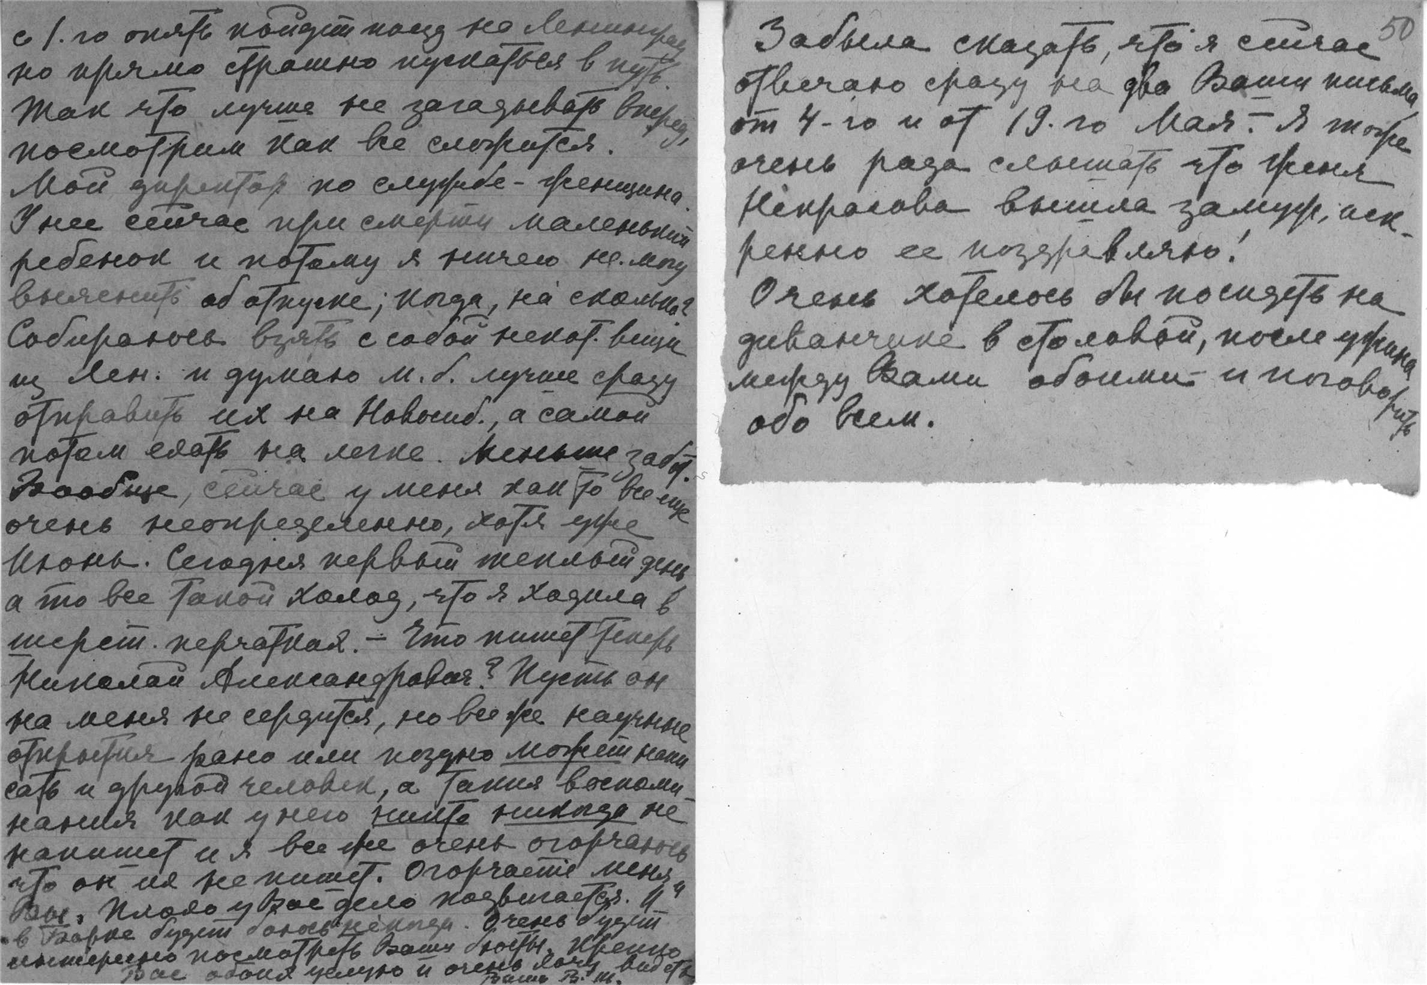 с 1.го опять пойдет поезд на Ленинград
но прямо страшно пускаться в путь.
Так что лучше не загадывать вперед,
посмотрим как все сложится.
Мой директор по службе - женщина.
У нее сейчас при смерти маленький
ребенок и потому я ничего не могу
выяснить об отпуске; когда, на сколько?
Собираюсь взять с собой некот. вещи
из Лен. и думаю м. б. лучше сразу
отправить их на Новосиб., а самой
потом ехать на легке. Меньше забот.
Вообще, сейчас у меня как то все еще
очень неопределенно, хотя уже
Июнь. Сегодня первый теплый день,
а то все такой холод, что я ходила в
шерст. перчатках. - Что пишет теперь
Николай Александрович? Пусть он
на меня не сердится, но все же научные
открытия рано или поздно может напи
сать и другой человек, а такия воспоми-
нания как у него никто никогда не
напишет и я все же очень огорчаюсь
что он их не пишет. Огорчаете меня и
Вы. Плохо у Вас дело подвигается. И
в Борке будет некогда. Очень будет
интересно посмотреть Ваши бюсты. Крепко
Вас обоих целую и очень хочу видеть
Ваша В. Ш.
50
Забыла сказать, что я сейчас
отвечаю сразу на два Ваши письма,
от 4-го и от 19.го Мая. - Я тоже
очень рада слышать что Женя
Некрасова вышла замуж, иск-
ренно ее поздравляю!
Очень хотелось бы посидеть на
диванчике в столовой, после ужина
между Вами обоими и поговорить
обо всем.